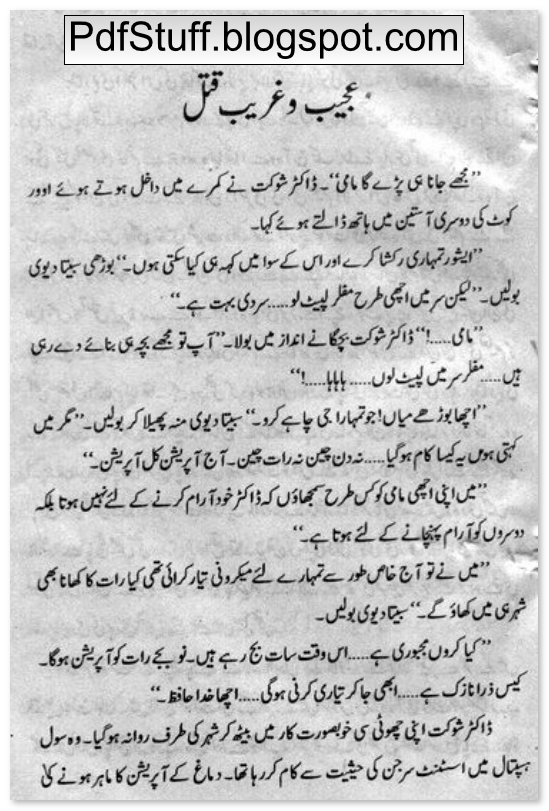 PdfStuff.blogspot.com
عجیب و غریب قتل
”مجھے جانا ہی پڑے گا مامی“۔ ڈاکٹر شوکت نے کمرے میں داخل ہوتے ہوئے اوور
کوٹ کی دوسری آستین میں ہاتھ ڈالتے ہوئے کہا۔
”ایشور تمہاری رکشا کرے اور اس کے سوا میں کہہ ہی کیا سکتی ہوں۔“ بوڑھی سبیتا دیوی
بولیں۔ ”لیکن سر میں اچھی طرح مفلر لپیٹ لو.....سردی بہت ہے۔“
”مامی.....!“ ڈاکٹر شوکت بچگانے انداز میں بولا۔ ”آپ تو مجھے بچہ ہی بنائے دے رہی
ہیں.....مفلر سر میں لپیٹ لوں.....ہاہاہا.....!“
”اچھا بوڑھے میاں! جو تمہارا جی چاہے کرو۔“ سبیتا دیوی منہ پھیلا کر بولیں۔ ”مگر میں
کہتی ہوں یہ کیسا کام ہو گیا.....نہ دن چین نہ رات چین۔ آج آپریشن کل آپریشن۔“
”میں اپنی اچھی مامی کو کس طرح سمجھاؤں کہ ڈاکٹر خود آرام کرنے کے لئے نہیں ہوتا بلکہ
دوسروں کو آرام پہنچانے کے لئے ہوتا ہے۔“
”میں نے تو آج خاص طور سے تمہارے لئے میکرونی تیار کرائی تھی کیا رات کا کھانا بھی
شہر ہی میں کھاؤ گے۔“ سبیتا دیوی بولیں۔
”کیا کروں مجبوری ہے.....اس وقت سات بج رہے ہیں۔ نو بجے رات کو آپریشن ہوگا۔
کیس ذرا نازک ہے.....ابھی جا کر تیاری کرنی ہوگی.....اچھا خدا حافظ۔“
ڈاکٹر شوکت اپنی چھوٹی سی خوبصورت کار میں بیٹھ کر شہر کی طرف روانہ ہو گیا۔ وہ سول
ہسپتال میں اسسٹنٹ سرجن کی حیثیت سے کام کر رہا تھا۔ دماغ کے آپریشن کا ماہر ہونے کی